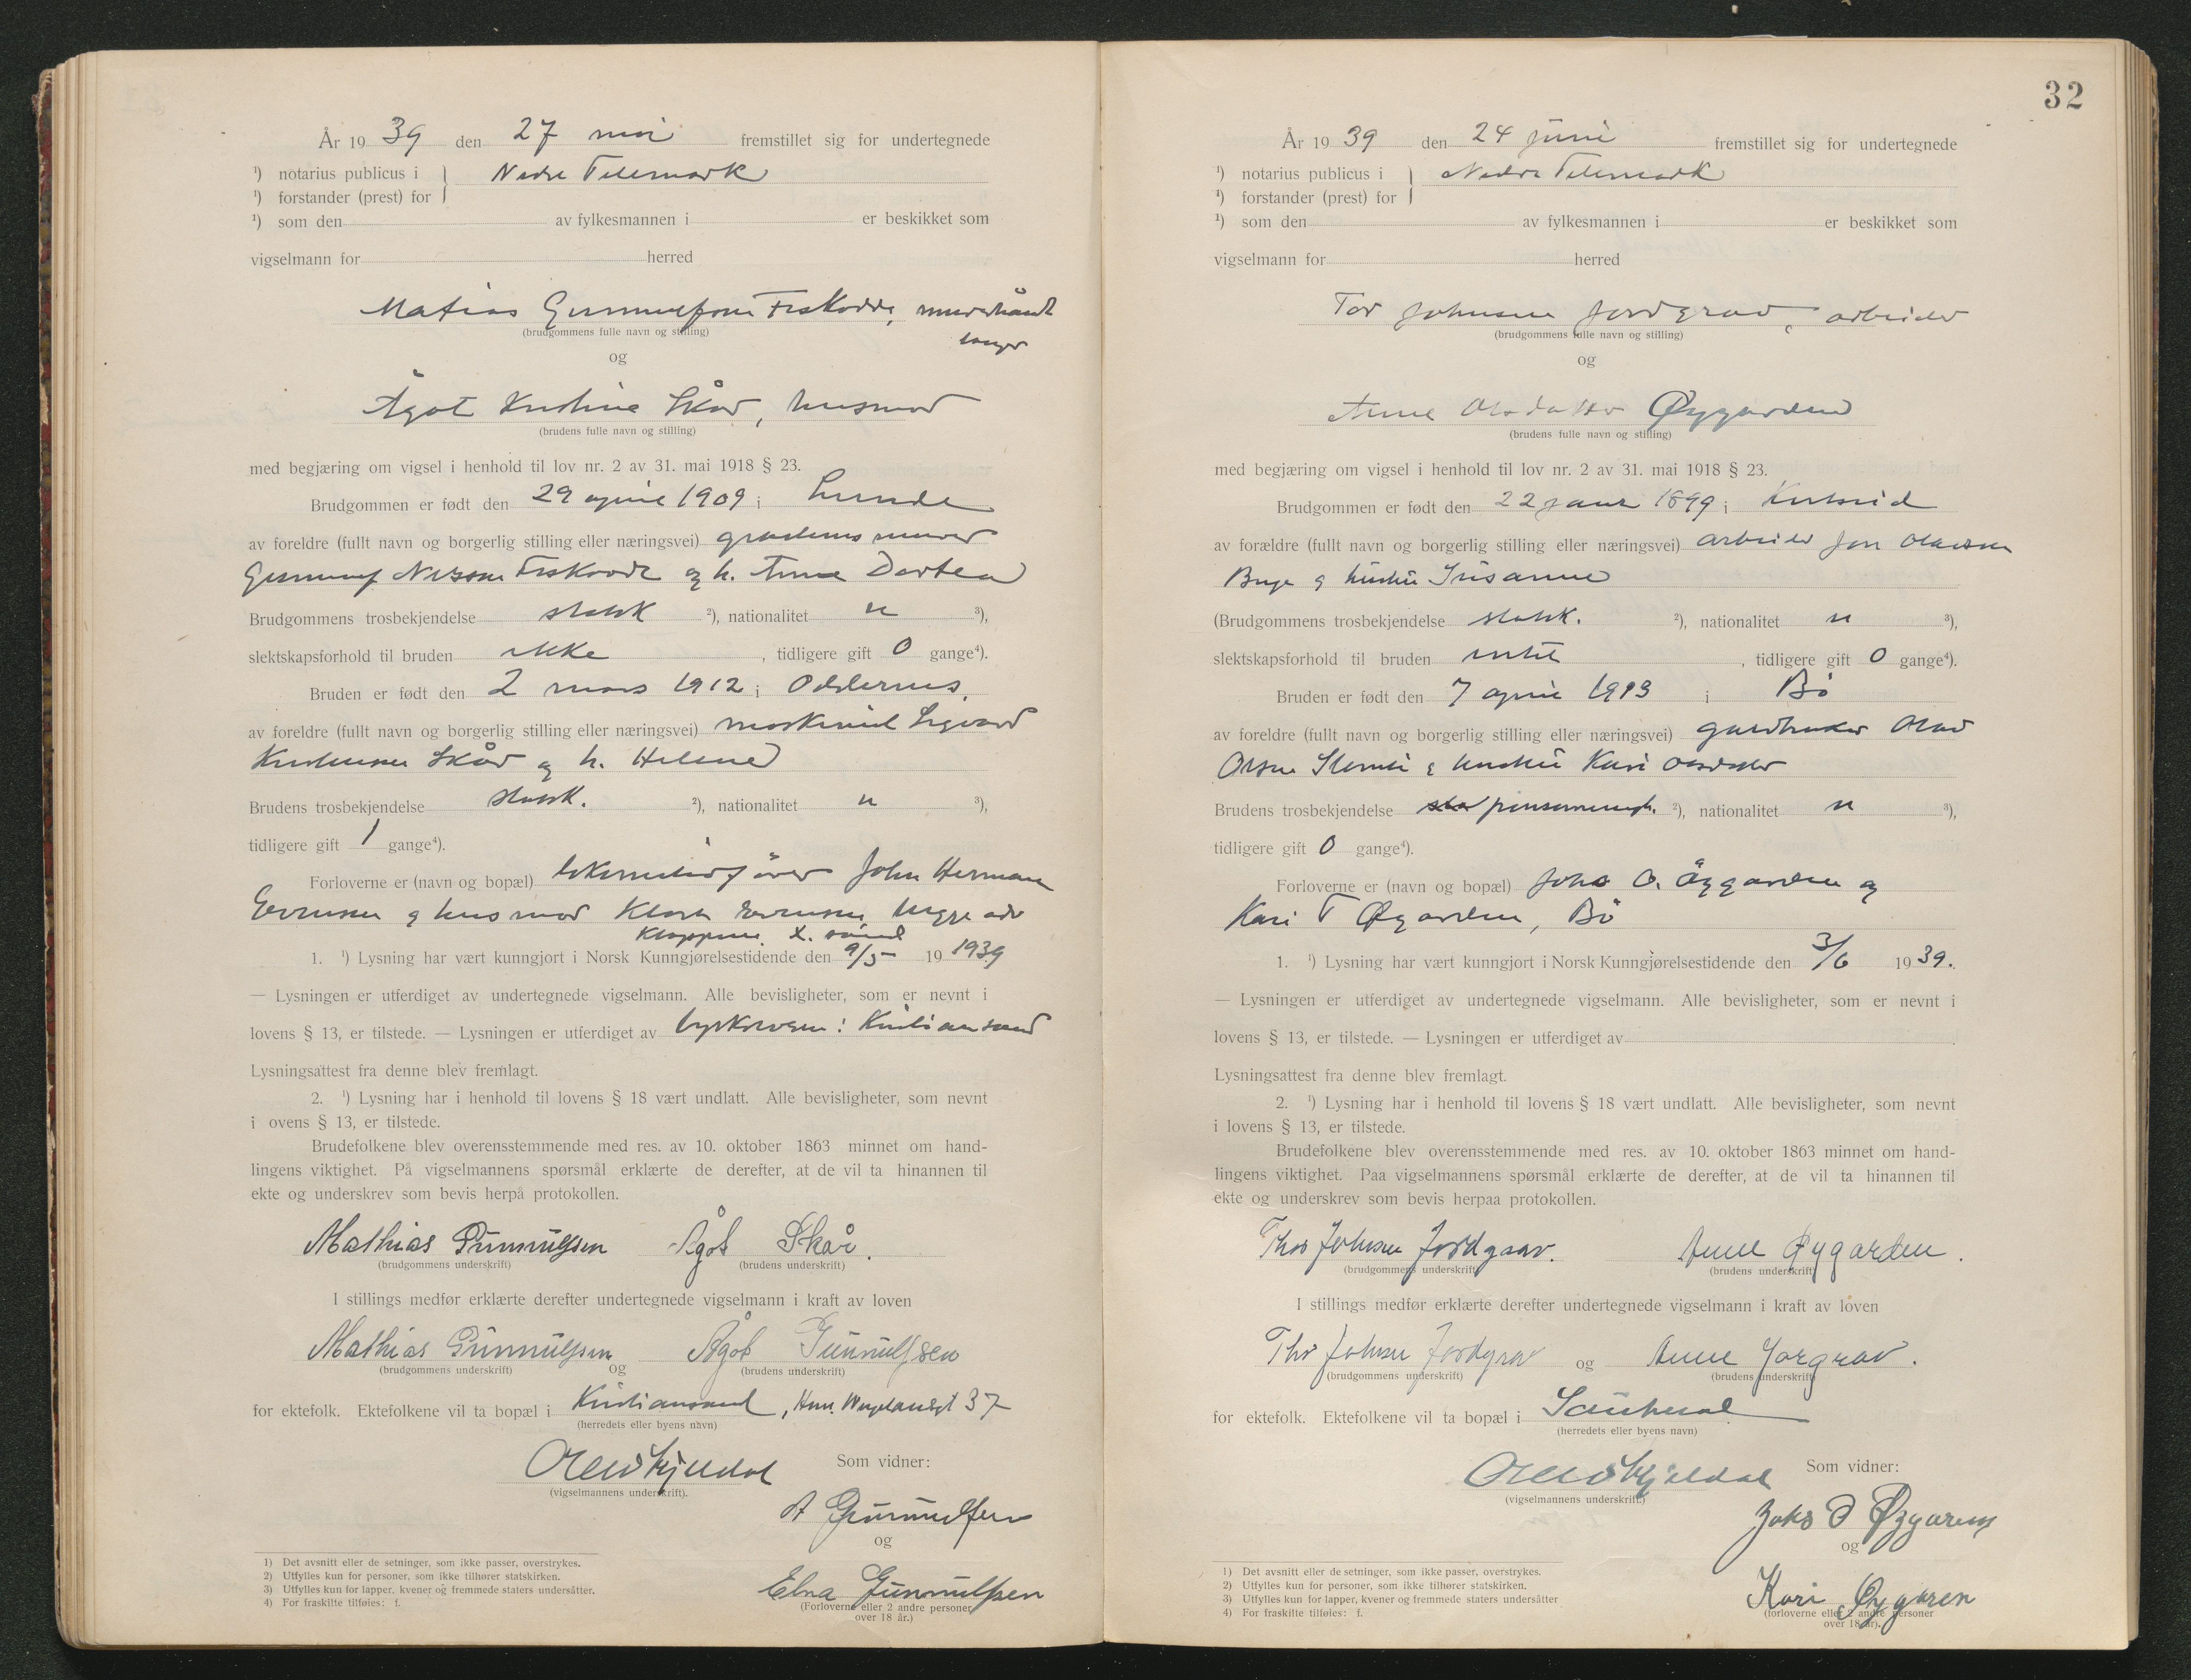 År 19 39 den 27 mai fremstillet sig for undertegnede
¹) notarius publicus i } Nedre Telemark
¹) forstander (prest) for
¹) som den av fylkesmannen i er beskikket som
vigselmann for herred
Matias Gunnulfson
(brudgommens fulle navn og stilling)
og
Ågot Kristine Skår, husmor
(brudens fulle navn og stilling)
med begjæring om vigsel i henhold til lov nr. 2 av 31. mai 1918 § 23.
Brudgommen er født den 29 april 1909 i Lunde
av foreldre (fullt navn og borgerlig stilling eller næringsvei)
og h. Anne Dortea
Brudgommens trosbekjendelse statsk ²), nationalitet n ³),
slektskapsforhold til bruden ikke, tidligere gift 0 gange⁴).
Bruden er født den 2 mars 1912 i Oddernes,
av foreldre (fullt navn og borgerlig stilling eller næringsvei) maskinist Sigvard
Skår og h. Helene
Brudens trosbekjendelse statsk. ²), nationalitet n ³),
tidligere gift 1 gange⁴).
Forloverne er (navn og bopæl) lokomotivfører John Herman
og husmor
1. ¹) Lysning har vært kunngjort i Norsk Kunngjørelsestidende den 9/5 19 1939
— Lysningen er utferdiget av undertegnede vigselmann. Alle bevisligheter, som er nevnt i
lovens § 13, er tilstede. — Lysningen er utferdiget av byskriveren i Kristiansand
Lysningsattest fra denne blev fremlagt.
2. ¹) Lysning har i henhold til lovens § 18 vært undlatt. Alle bevisligheter, som nevnt
i ovens § 13, er tilstede.
Brudefolkene blev overensstemmende med res. av 10. oktober 1863 minnet om hand-
lingens viktighet. På vigselmannens spørsmål erklærte de derefter, at de vil ta hinannen til
ekte og underskrev som bevis herpå protokollen.
Mathias Gunnulfsen Ågot Skår.
(brudgommens underskrift) (brudens underskrift)
I stillings medfør erklærte derefter undertegnede vigselmann i kraft av loven
Mathias Gunnulfsen og Ågot Gunnulfsen
(brudgommens underskrift) (brudens underskrift)
for ektefolk. Ektefolkene vil ta bopæl i Kristiansand, Hen. Wergelandsgt 37
(herredets eller byens navn)
Som vidner:
(vigselmannens underskrift).
A Gunnulfsen
og
Elna Gunnulfsen
(Forloverne eller 2 andre personer
over 18 år.)
1) Det avsnitt eller de setninger, som ikke passer, overstrykes.
2) Utfylles kun for personer, som ikke tilhører statskirken.
3) Utfylles kun for lapper, kvener og fremmede staters undersåtter.
4) For fraskilte tilføies: f.
32
År 19 39 den 24 juni fremstillet sig for undertegnede
¹) notarius publicus i } Nedre Telemark
¹) forstander (prest) for
¹) som den av fylkesmannen i er beskikket som
vigselmann for herred
Tor Johnsen Jordgrav, arbeider
(brudgommens fulle navn og stilling)
og
Anne Olsdatter Øygarden
(brudens fulle navn og stilling)
med begjæring om vigsel i henhold til lov nr. 2 av 31. mai 1918 § 23.
Brudgommen er født den 22 januar 1899 i
av forældre (fullt navn og borgerlig stilling eller næringsvei) arbeider Jon
og hustru Susanne
(Brudgommens trosbekjendelse statsk. ²), nationalitet n ³),
slektskapsforhold til bruden intet, tidligere gift 0 gange⁴).
Bruden er født den 7 april 1913 i Bø
av foreldre (fullt navn og borgerlig stilling eller næringsvei) gardbruker Olav
Olsen og hustru Kari Olsdatter
Brudens trosbekjendelse ²), nationalitet n ³),
tidligere gift 0 gange⁴).
Forloverne er (navn og bopæl) Johs O. Øygarden og
Kari T Øygarden, Bø
1. ¹) Lysning har vært kunngjort i Norsk Kunngjørelsestidende den 3/6 19 39.
— Lysningen er utferdiget av undertegnede vigselmann. Alle bevisligheter, som er nevnt i
lovens § 13, er tilstede. — Lysningen er utferdiget av
Lysningsattest fra denne blev fremlagt.
2. ¹) Lysning har i henhold til lovens § 18 vært undlatt. Alle bevisligheter, som nevnt
i lovens § 13, er tilstede.
Brudefolkene blev overensstemmende med res. av 10. oktober 1863 minnet om hand-
lingens viktighet. Paa vigselmannens spørsmål erklærte de derefter, at de vil ta hinannen til
ekte og underskrev som bevis herpaa protokollen.
Thor Johnsen Jordgrav. Anne Øygarden.
(brudgommens underskrift) (brudens underskrift)
I stillings medfør erklærte derefter undertegnede vigselmann i kraft av loven
Thor Johnsen Jordgrav og Anne Jorgrav.
(brudgommens underskrift) (brudens underskrift)
for ektefolk. Ektefolkene vil ta bopæl i Sauherad
(herredets eller byens navn)
Som vidner:
(vigselmannens underskrift.)
Johs O Øygaren
og
Kari Øygaren
(forloverne eller 2 andre personer
over 18 år).
1) Det avsnitt eller de setninger, som ikke passer, overstrykes.
2) Utfylles kun for personer, som ikke tilhører statskirken.
3) Utfylles kun for lapper, kvener og fremmede staters undersåtter
4) For fraskilte tilføies: f.